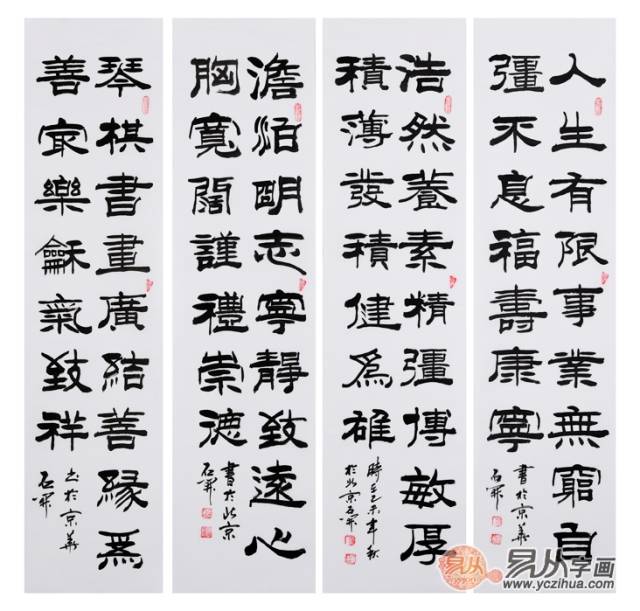 人生有限事業無窮自
彊不息福壽康寧
書於京華
浩然養素精彊博敏厚
積薄發積健爲雄
時在乙未年秋
於北京
澹泊明志寧靜致遠心
胸寬闊謹禮崇德
書於北京
琴棋書畫廣結善緣爲
善最樂龢氣致祥
書於京華
易从字画
www.yczihua.com